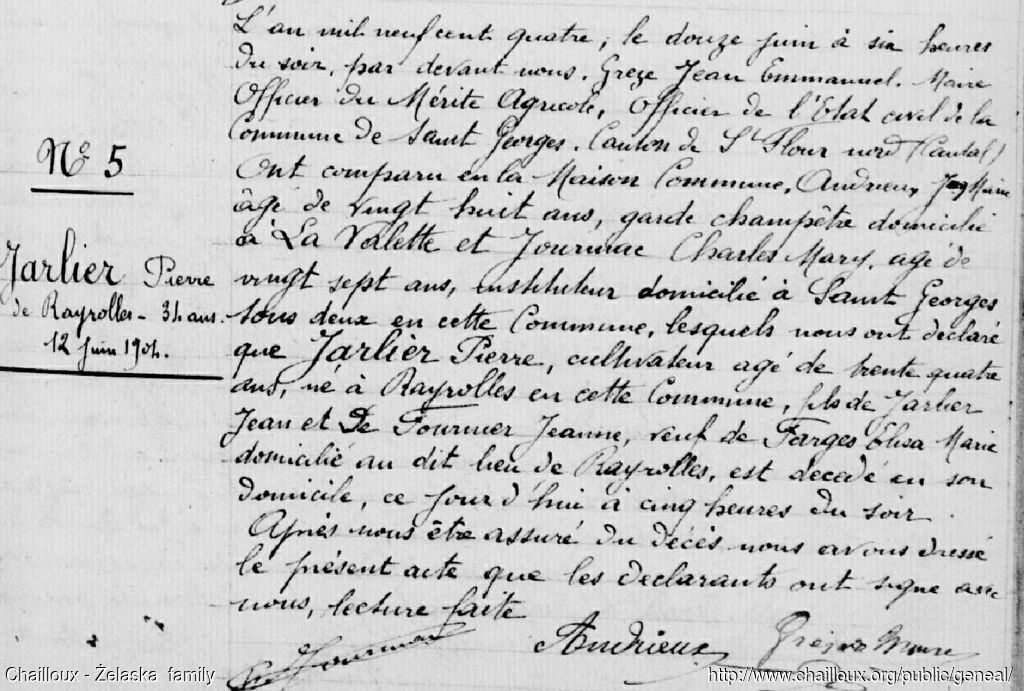 N° 5
Jarlier Pierre
de Rayrolles - 34 ans.
12 Juin 1904.
L'an mil neuf cent quatre, le douze juin à six heures
du soir, par devant nous. Grèze Jean Emmanuel. Maire
Officier du Mérite Agricole, Officier de l'Etat civil de la
Commune de Saint Georges. Canton de St Flour nord (Cantal)
Ont comparu en la Maison Commune, Andrieux Marie
âgé de vingt huit ans, garde champêtre domicilié
à La Valette et Journiac Charles Mary. agé de
vingt sept ans, instituteur domicilié à Saint Georges
tous deux en cette Commune, lesquels nous ont déclaré
que Jarlier Pierre, cultivateur agé de trente quatre
ans, né à Rayrolles en cette Commune, fils de Jarlier
Jean et De Fournier Jeanne, veuf de Farges Elisa Marie
domicilié au dit lieu de Rayrolles, est decedé en son
domicile, ce jour d'hui à cinq heures du soir.
Après nous être assuré du décès nous avons dressé
le présent acte que les declarants ont signé avec
nous, lecture faite
Andrieux
Chailloux - Żelaska family
http://www.chailloux.org/public/geneal/